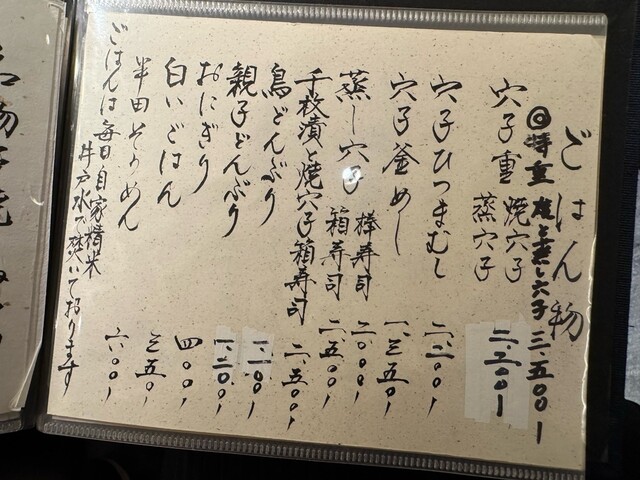 ごはん物
◎特重 焼と蒸し穴子 三、五〇〇ー
穴子重 焼穴子 蒸穴子 二、二〇〇ー
穴子ひつまむし 二、二〇〇ー
穴子釜めし 一、三五〇ー
蒸し穴子 棒寿司 二、〇〇〇ー
箱寿司 二、五〇〇ー
千枚漬と焼穴子箱寿司 二、五〇〇ー
鳥どんぶり 一、二〇〇ー
親子どんぶり 一、二〇〇ー
おにぎり 四〇〇ー
白いごはん 三五〇ー
半田そうめん 六〇〇ー
ごはんは毎日自家精米
井戸水で焚いております